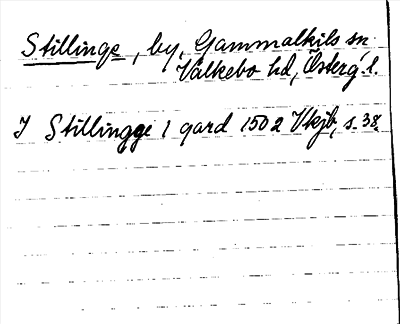 Stillinge, by, Gammalkils sn.
Valkebo hd, Österg. l.
I Stillingge 1 gard 1502 Vkjb, s. 38.